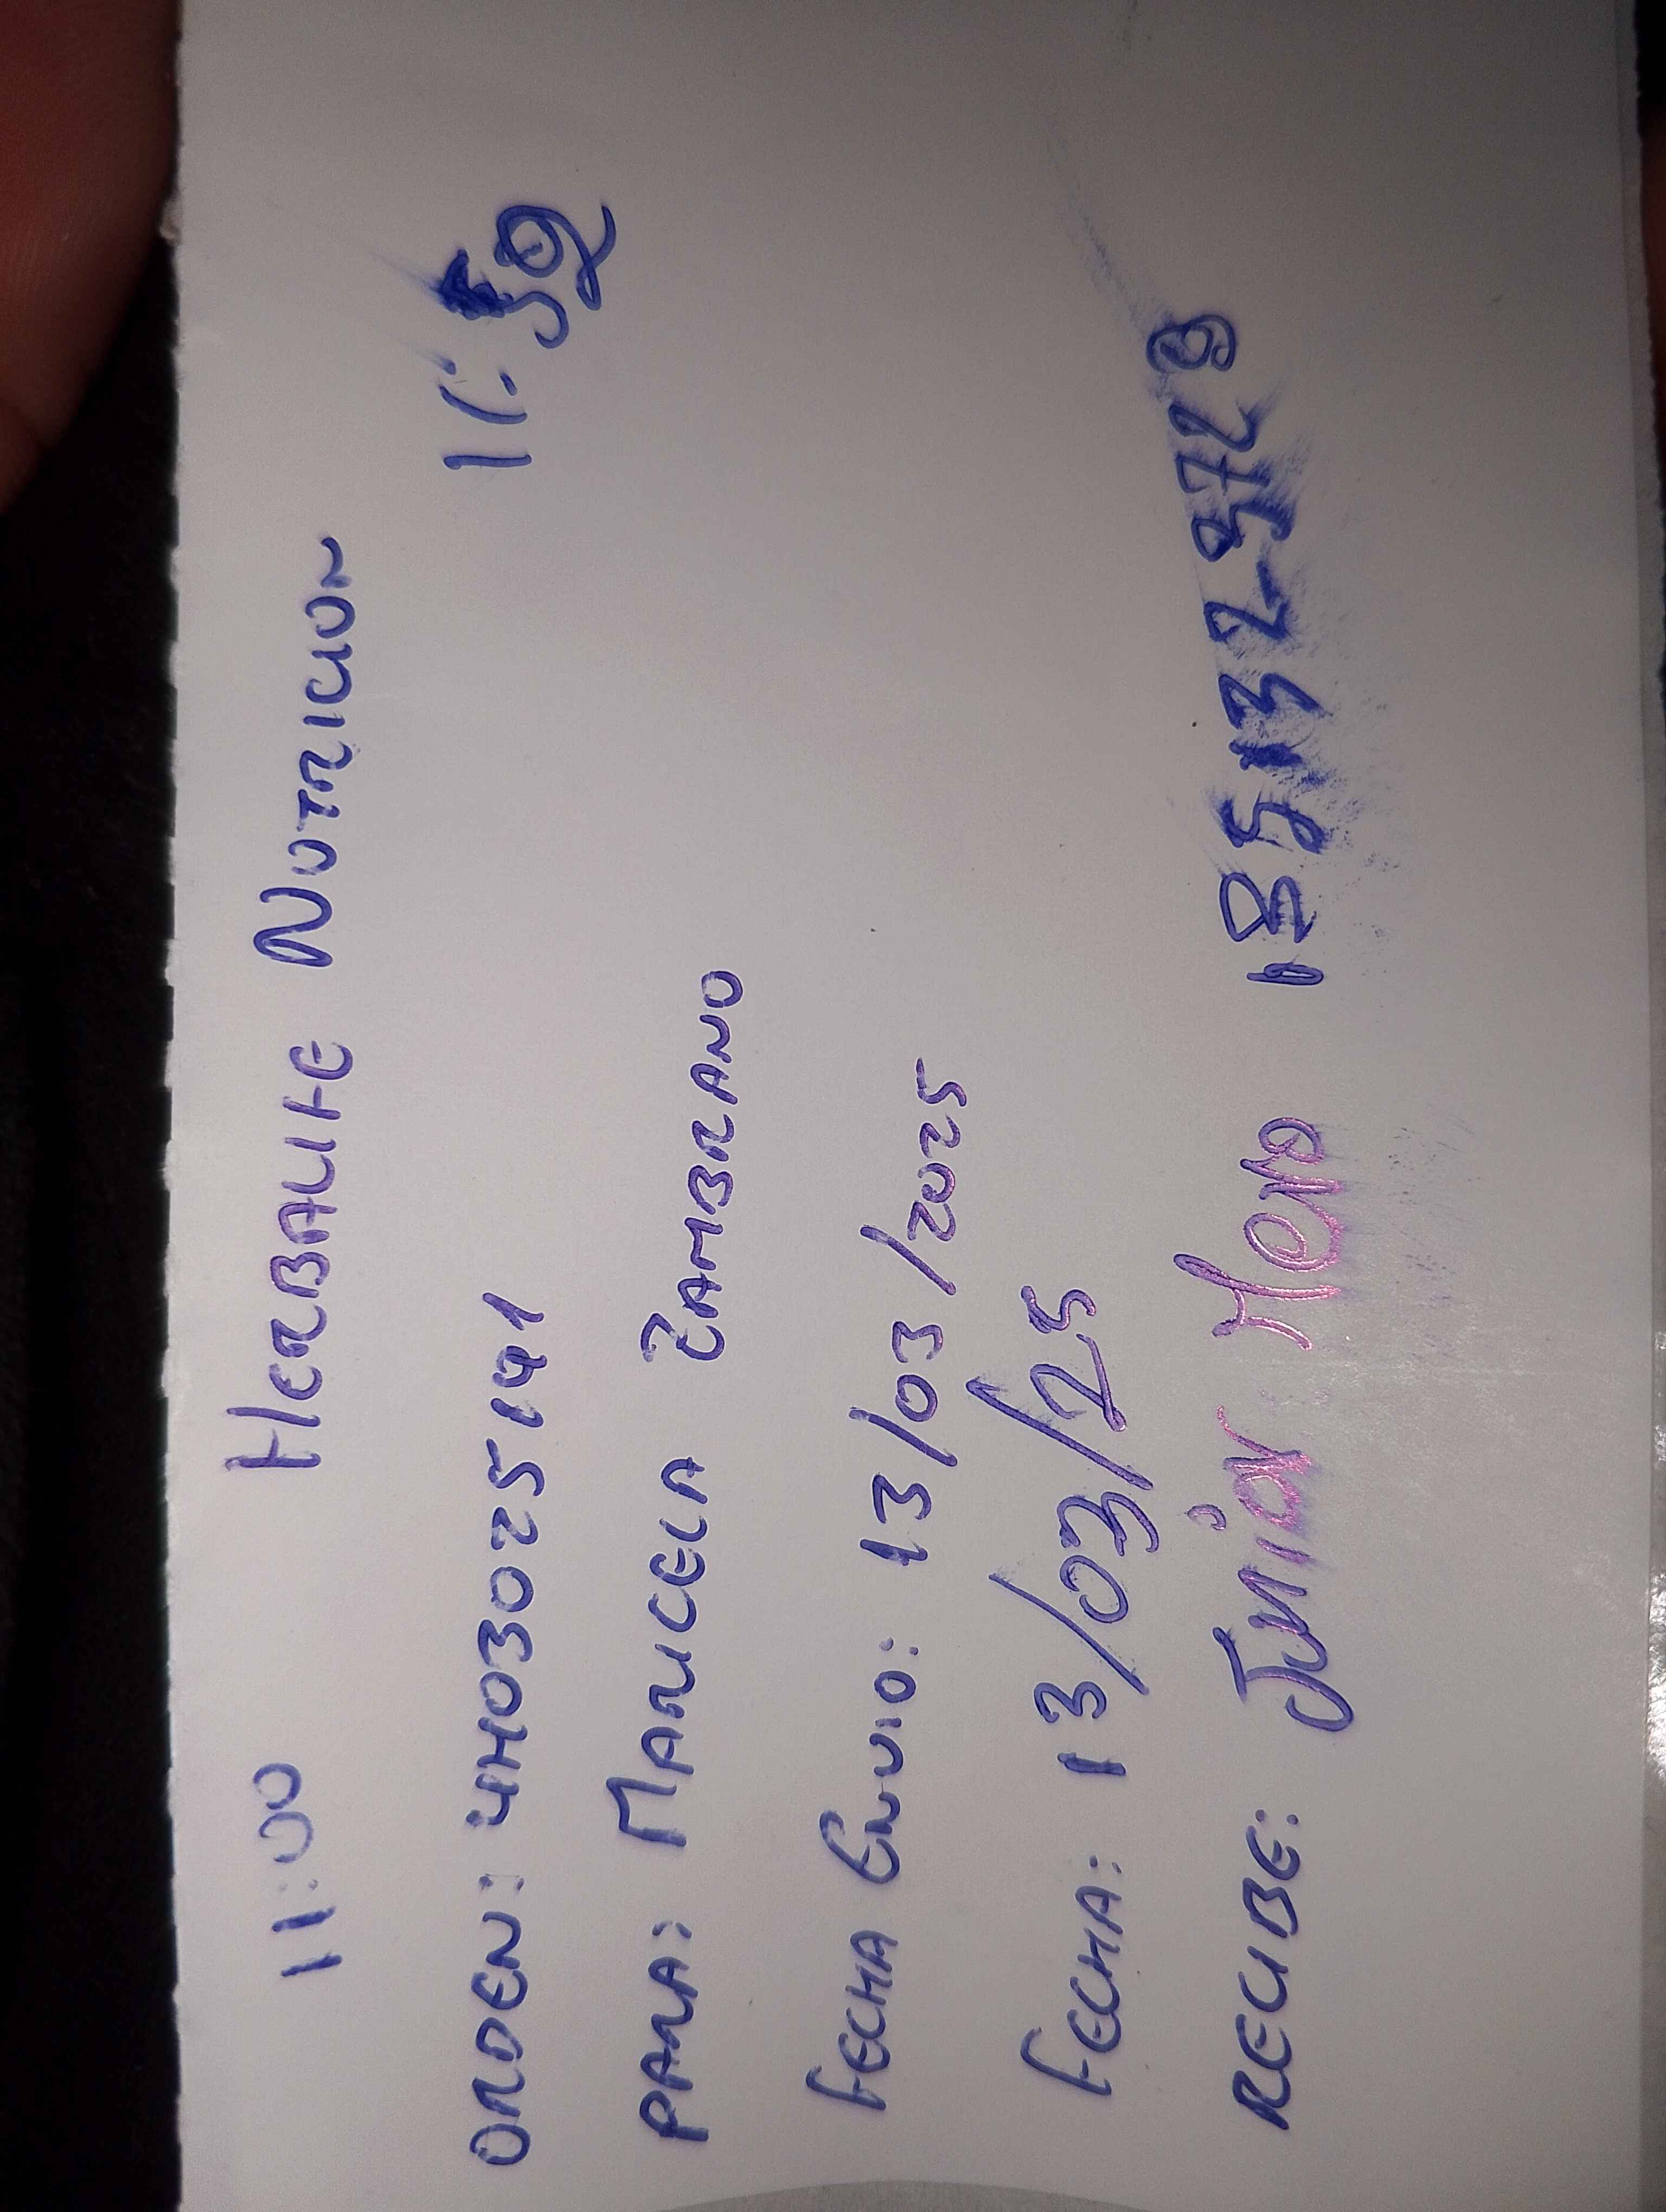 11:00 HERBALIFE NUTRICION
11:52
ORDEN: 4H03025141
PARA: MARICELA ZAMBRANO
FECHA ENVIO: 13/03/2025
FECHA: 13/03/25
RECIBE: Junior Mero